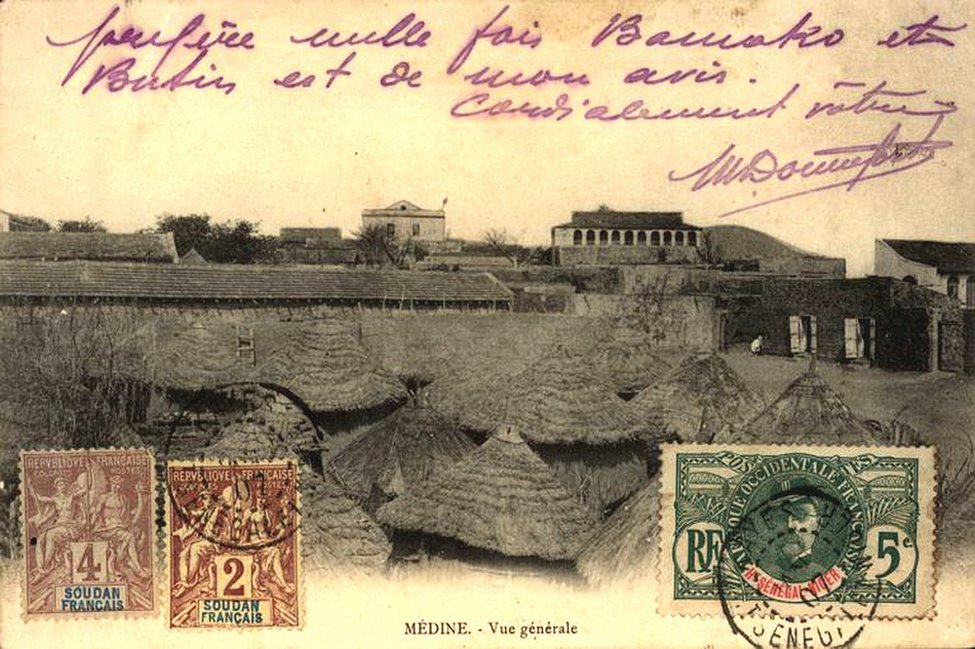 préfère mille fois Bamako et
Butin est de mon avis.
Cordialement vôtre
REPVBLIQVE FRANÇAISE
COLONIES POSTES
4
SOUDAN
FRANÇAIS
REPVBLIQVE FRANÇAISE
2
SOUDAN
FRANÇAIS
POSTES
AFRIQUE OCCIDENTALE FRANÇAISE
RF
5c
Hᵗ SÉNÉGAL-NIGER
MÉDINE. - Vue générale